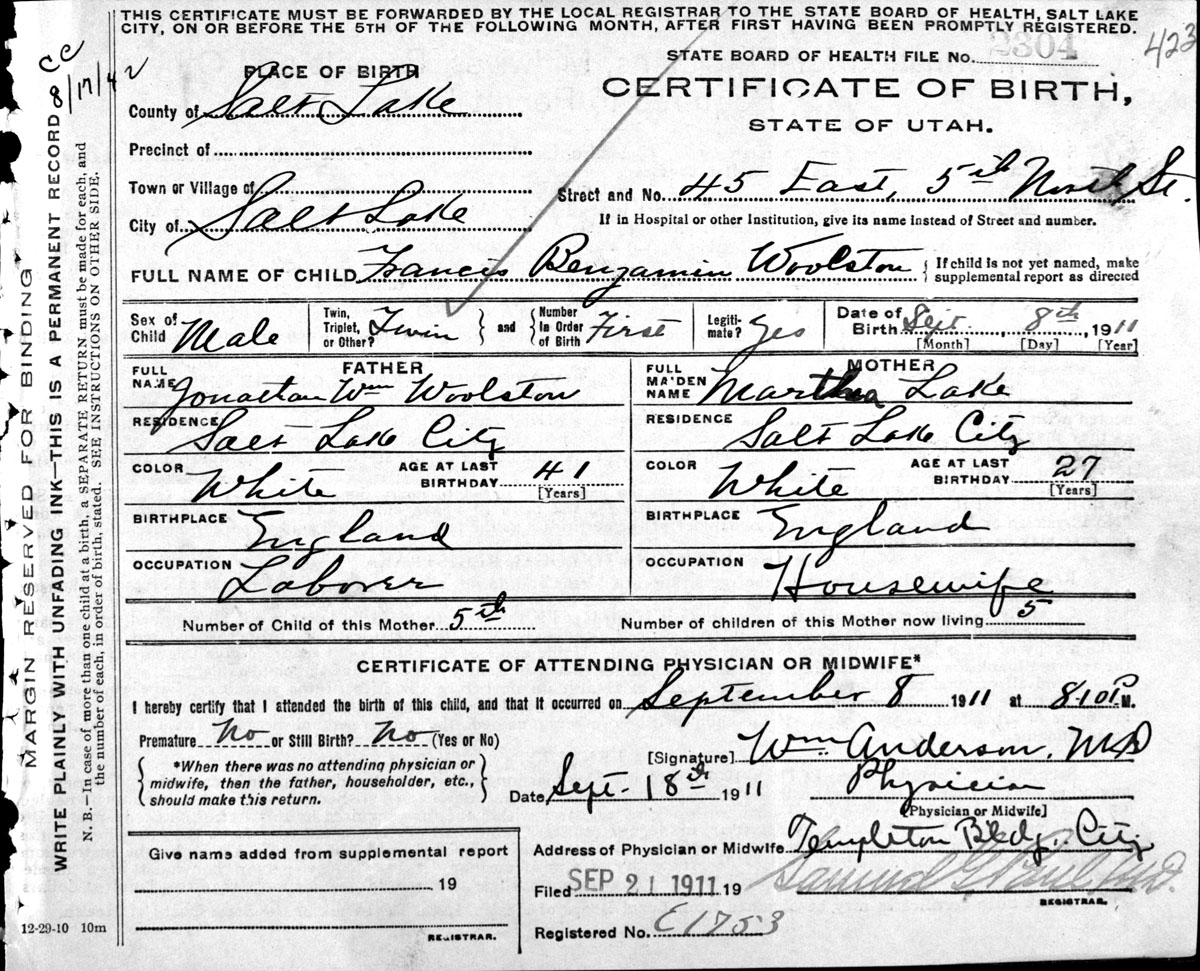 THIS CERTIFICATE MUST BE FORWARDED BY THE LOCAL REGISTRAR TO THE STATE BOARD OF HEALTH, SALT LAKE
CITY, ON OR BEFORE THE 5TH OF THE FOLLOWING MONTH, AFTER FIRST HAVING BEEN PROMPTLY REGISTERED.
STATE BOARD OF HEALTH FILE No. 2304
423
CC 8/17/42
PLACE OF BIRTH
CERTIFICATE OF BIRTH,
County of Salt Lake
STATE OF UTAH.
Precinct of
Town or Village of
Street and No. 45 East, 5th North St.
City of Salt Lake
If in Hospital or other Institution, give its name instead of Street and number.
FULL NAME OF CHILD Francis Benjamin Woolston { If child is not yet named, make supplemental report as directed
Sex of Child Male Twin, Triplet, or Other? Twin } and { Number In Order of Birth First Legitimate? Yes Date of Birth Sept. 8th, 1911
[Month] [Day] [Year]
FATHER
MOTHER
FULL NAME Jonathan Wm Woolston
FULL MAIDEN NAME Martha Lake
RESIDENCE Salt Lake City
RESIDENCE Salt Lake City
COLOR White AGE AT LAST BIRTHDAY 41 [Years]
COLOR White AGE AT LAST BIRTHDAY 27 [Years]
BIRTHPLACE England
BIRTHPLACE England
OCCUPATION Laborer
OCCUPATION Housewife
Number of Child of this Mother 5th
Number of children of this Mother now living 5
CERTIFICATE OF ATTENDING PHYSICIAN OR MIDWIFE*
I hereby certify that I attended the birth of this child, and that it occurred on September 8 1911 at 8:10 P M.
Premature No or Still Birth? No (Yes or No)
{ *When there was no attending physician or midwife, then the father, householder, etc., should make this return. }
[Signature] Wm Anderson, MD
Date Sept. 18th 1911
Physician
[Physician or Midwife]
Address of Physician or Midwife Templeton Bldg. City
Give name added from supplemental report
19
REGISTRAR.
Filed SEP 21 1911 19
REGISTRAR.
Registered No. E1753
12-29-10 10m
MARGIN RESERVED FOR BINDING
WRITE PLAINLY WITH UNFADING INK—THIS IS A PERMANENT RECORD
N. B.—In case of more than one child at a birth, a SEPARATE RETURN must be made for each, and
the number of each, in order of birth, stated. SEE INSTRUCTIONS ON OTHER SIDE.